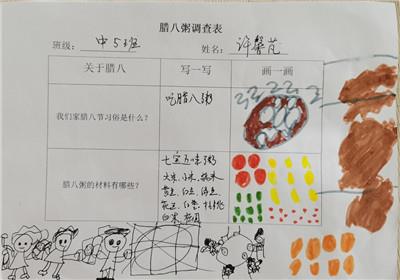 腊八粥调查表
班级： 中5班 姓名： 许馨苑
关于腊八 写一写 画一画
我们家腊八节习俗是什么？ 吃腊八粥
腊八粥的材料有哪些？ 七宝五味粥
大米、小米、糯米
黄豆、红豆、绿豆
花豆、红枣、核桃
白米、桂圆